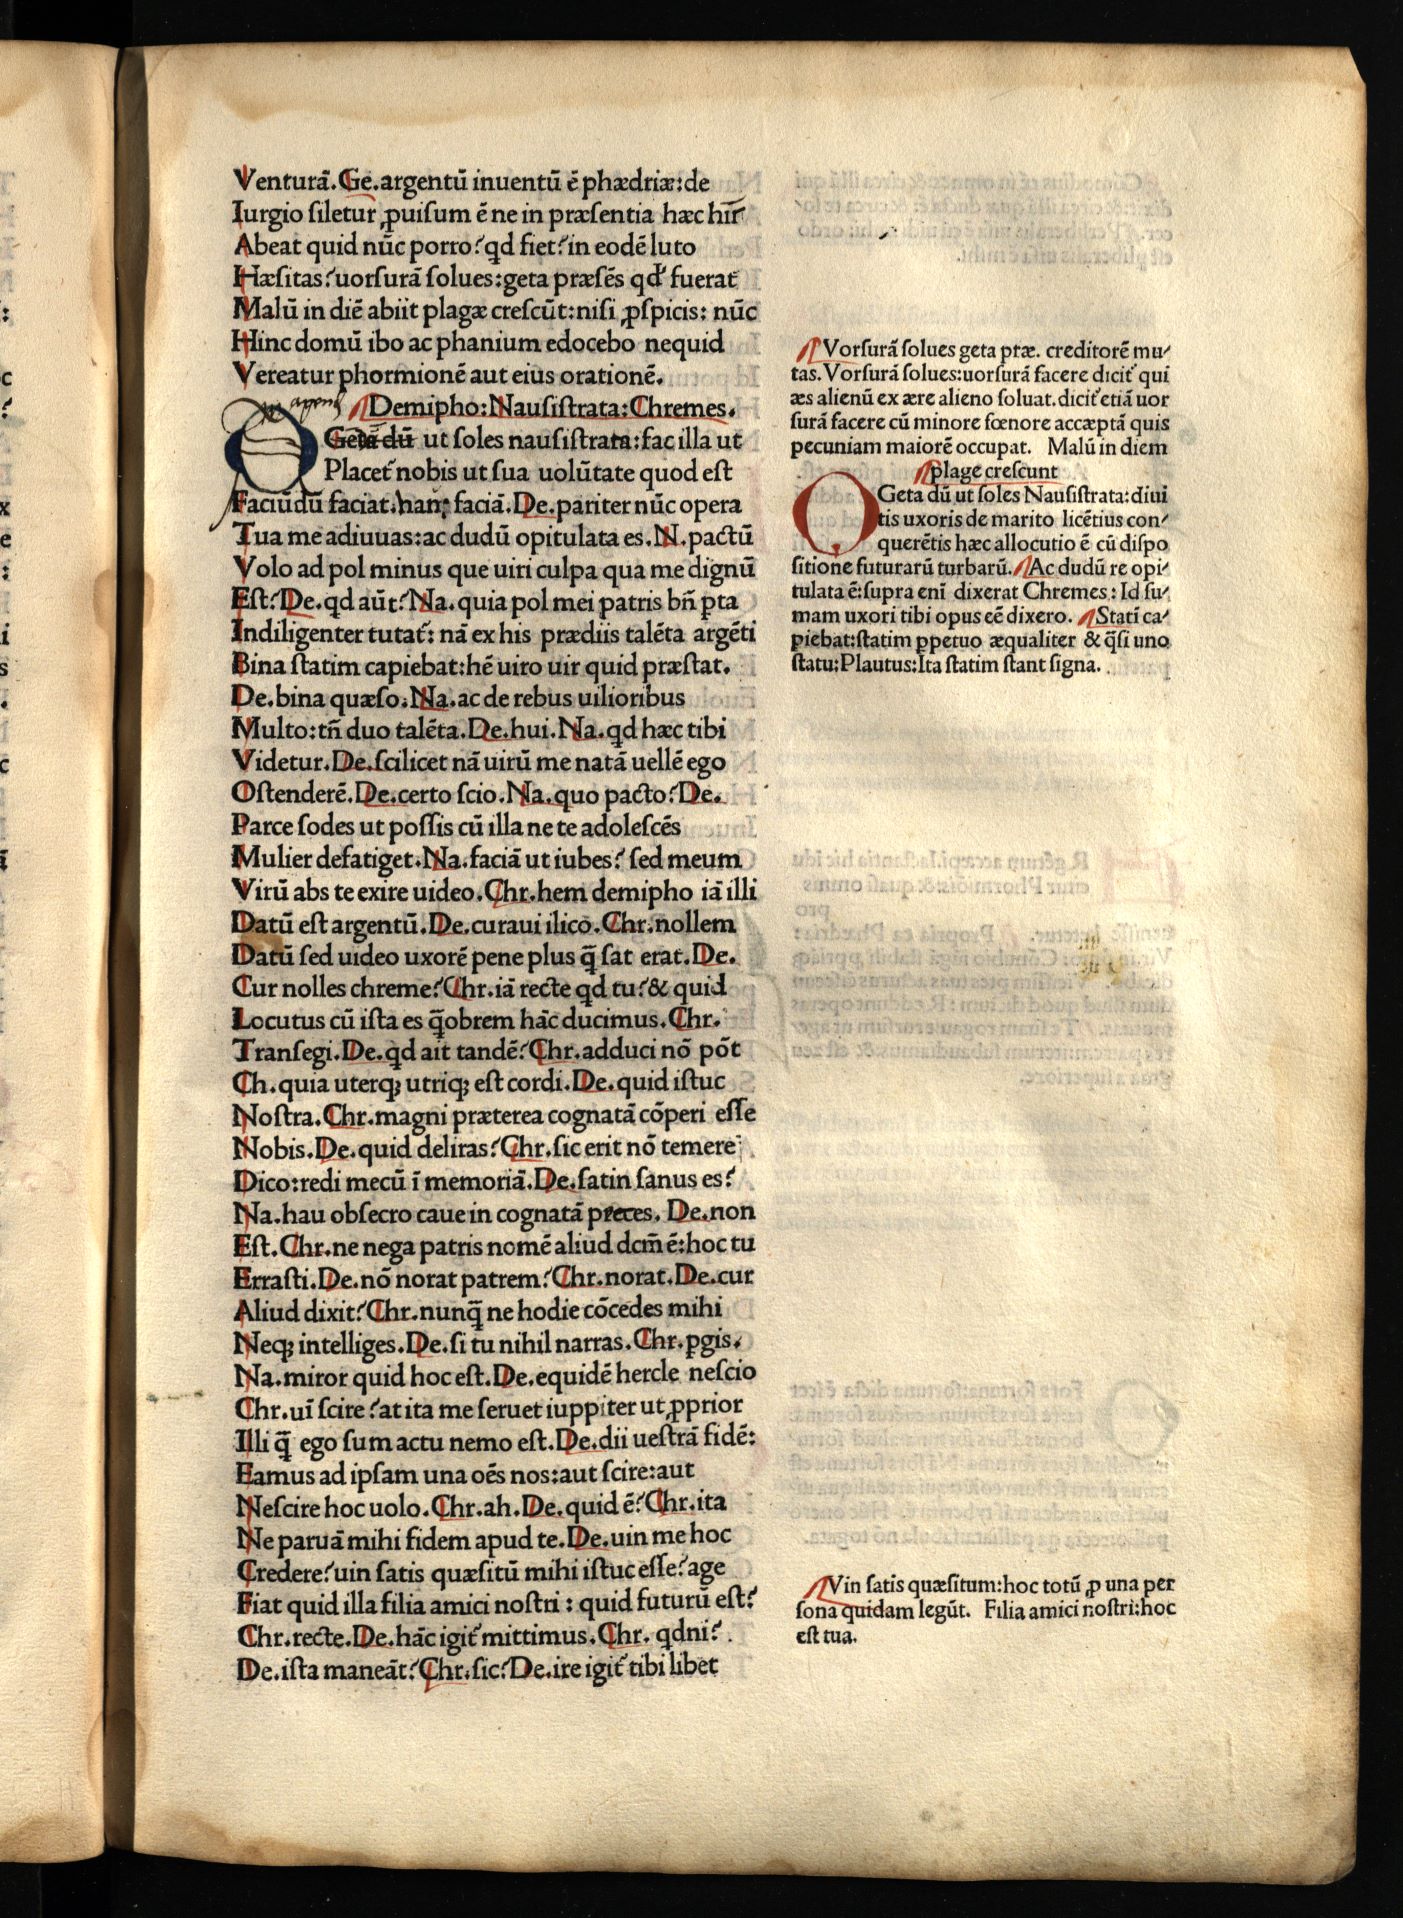 Venturā.Ge.argentū inuentū ē phædriæ:de
Iurgio ſiletur ꝓuiſum ē ne in præſentia hæc hīr
Abeat quid nūc porro? qd fiet? in eodē luto
Hæſitas? uorſurā ſolues:geta præſēs qd fuerat
Malū in diē abiit plagæ creſcūt:niſi ꝓſpicis: nūc
Hinc domū ibo ac phanium edocebo nequid
Vereatur phormionē aut eius orationē.
Demipho:Nauſiſtrata:Chremes.
Geta dū ut ſoles nauſiſtrata:fac illa ut
Placet nobis ut ſua uolūtate quod eſt
Faciūdū faciat. faciā.De.pariter nūc opera
Tua me adiuuas:ac dudū opitulata es.N.pactū
Volo ad pol minus que uiri culpa qua me dignū
Eſt? De.qd aūt? Na.quia pol mei patris bn̄ ꝑta
Indiligenter tutat: nā ex his prædiis talēta argēti
Bina ſtatim capiebat:hē uiro uir quid præſtat.
De.bina quæſo.Na.ac de rebus uilioribus
Multo:tn̄ duo talēta.De.hui.Na.qd hæc tibi
Videtur.De.ſcilicet nā uirū me natā uellē ego
Oſtenderē.De.certo ſcio.Na.quo pacto? De.
Parce ſodes ut poſſis cū illa ne te adoleſcēs
Mulier defatiget.Na.faciā ut iubes? ſed meum
Virū abs te exire uideo.Chr.hem demipho iā illi
Datū eſt argentū.De.curaui ilico.Chr.nollem
Datū ſed uideo uxorē pene plus q̄ ſat erat.De.
Cur nolles chreme? Chr.iā recte qd tu? & quid
Locutus cū iſta es q̄obrem hāc ducimus.Chr.
Tranſegi.De.qd ait tandē? Chr.adduci nō pōt
Ch.quia uterqꝫ utriqꝫ eſt cordi.De.quid iſtuc
Noſtra.Chr.magni præterea cognatā cōperi eſſe
Nobis.De.quid deliras? Chr.ſic erit nō temere
Dico:redi mecū ī memoriā.De.ſatin ſanus es?
Na.hau obſecro caue in cognatā preces. De.non
Eſt.Chr.ne nega patris nomē aliud dcm̄ ē:hoc tu
Erraſti.De.nō norat patrem? Chr.norat.De.cur
Aliud dixit? Chr.nunq̄ ne hodie cōcedes mihi
Neqꝫ intelliges.De.ſi tu nihil narras.Chr.ꝑgis.
Na.miror quid hoc eſt.De.equidē hercle neſcio
Chr.uī ſcire? at ita me ſeruet iuppiter ut ꝓprior
Illi q̄ ego ſum actu nemo eſt.De.dii ueſtrā fidē:
Eamus ad ipſam una oēs nos:aut ſcire:aut
Neſcire hoc uolo.Chr.ah.De.quid ē? Chr.ita
Ne paruā mihi fidem apud te.De.uin me hoc
Credere? uin ſatis quæſitū mihi iſtuc eſſe? age
Fiat quid illa filia amici noſtri: quid futurū eſt?
Chr.recte.De.hāc igit mittimus.Chr. qdni?
De.iſta maneāt? Chr.ſic? De.ire igit tibi libet
Vorſurā ſolues geta præ. creditorē mu-
tas.Vorſurā ſolues:uorſurā facere dicit qui
æs alienū ex ære alieno ſoluat.dicit etiā uor
ſurā facere cū minore fœnore accæptā quis
pecuniam maiorē occupat. Malū in diem
plage creſcunt
O Geta dū ut ſoles Nauſiſtrata:diui
tis uxoris de marito licētius con-
querētis hæc allocutio ē cū diſpo
ſitione futurarū turbarū. Ac dudū re opi-
tulata ē:ſupra enī dixerat Chremes: Id ſu-
mam uxori tibi opus eē dixero. Statī ca-
piebat:ſtatim ꝑpetuo æqualiter & q̄ſi uno
ſtatu:Plautus:Ita ſtatim ſtant ſigna.
Vin ſatis quæſitum:hoc totū ꝓ una per
ſona quidam legūt. Filia amici noſtri:hoc
eſt tua.